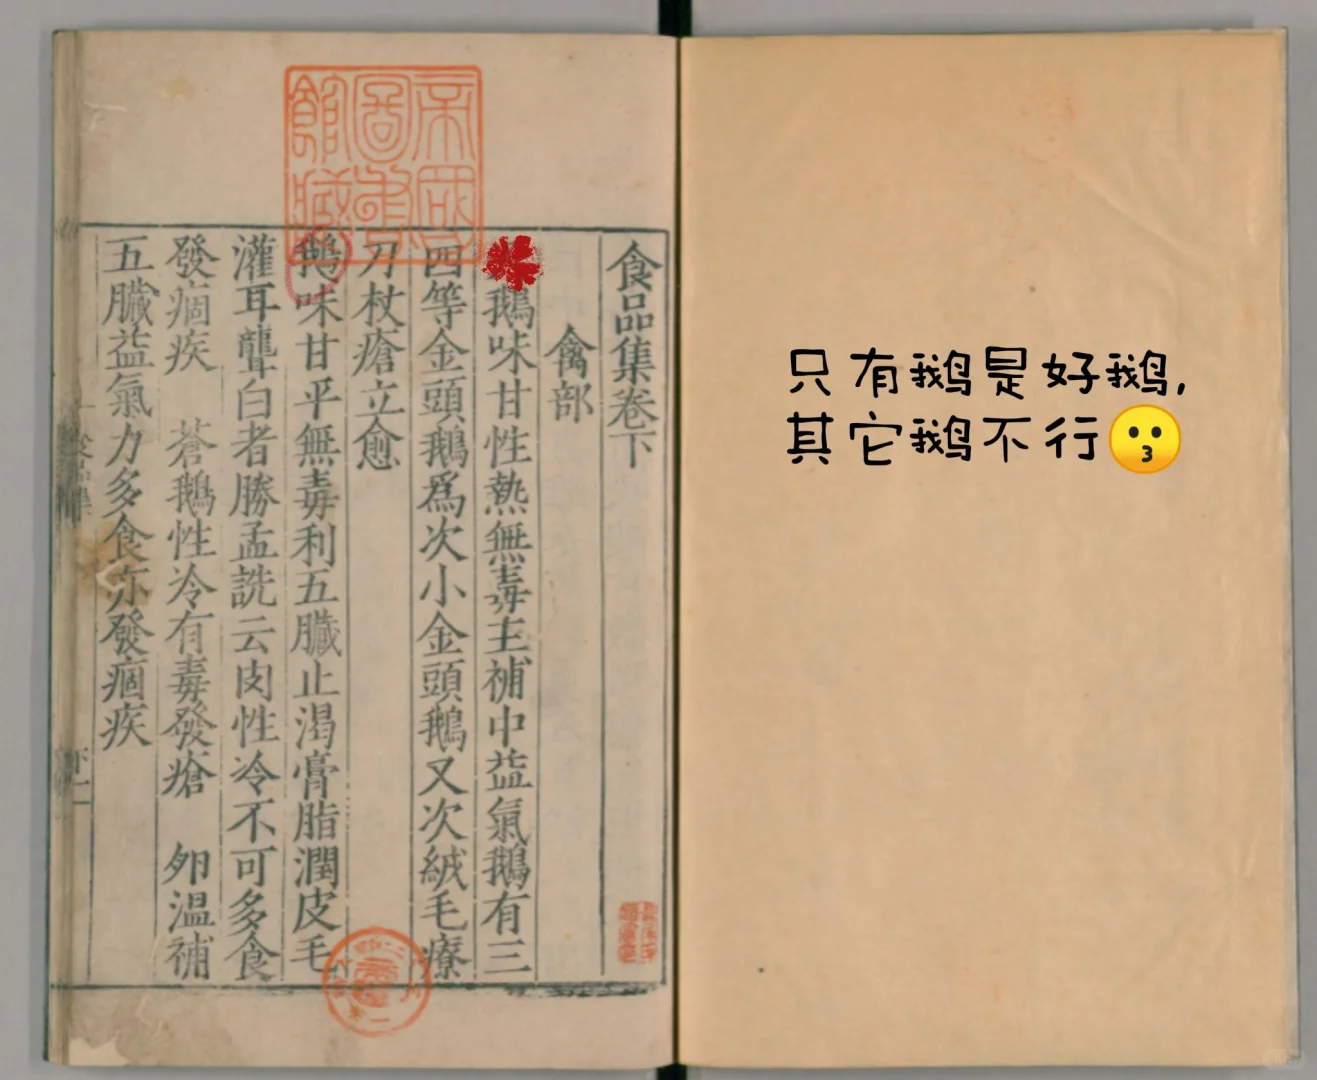 只有鹅是好鹅,
其它鹅不行😗
帝國圖書館藏
食品集卷下
禽部
鵝味甘性熱無毒主補中益氣鵝有三
四等金頭鵝爲次小金頭鵝又次絨毛療
刀杖瘡立愈
鵝味甘平無毒利五臟止渴膏脂潤皮毛
灌耳聾白者勝孟詵云肉性冷不可多食
發痼疾　蒼鵝性冷有毒發瘡　卵温補
五臟益氣力多食亦發痼疾